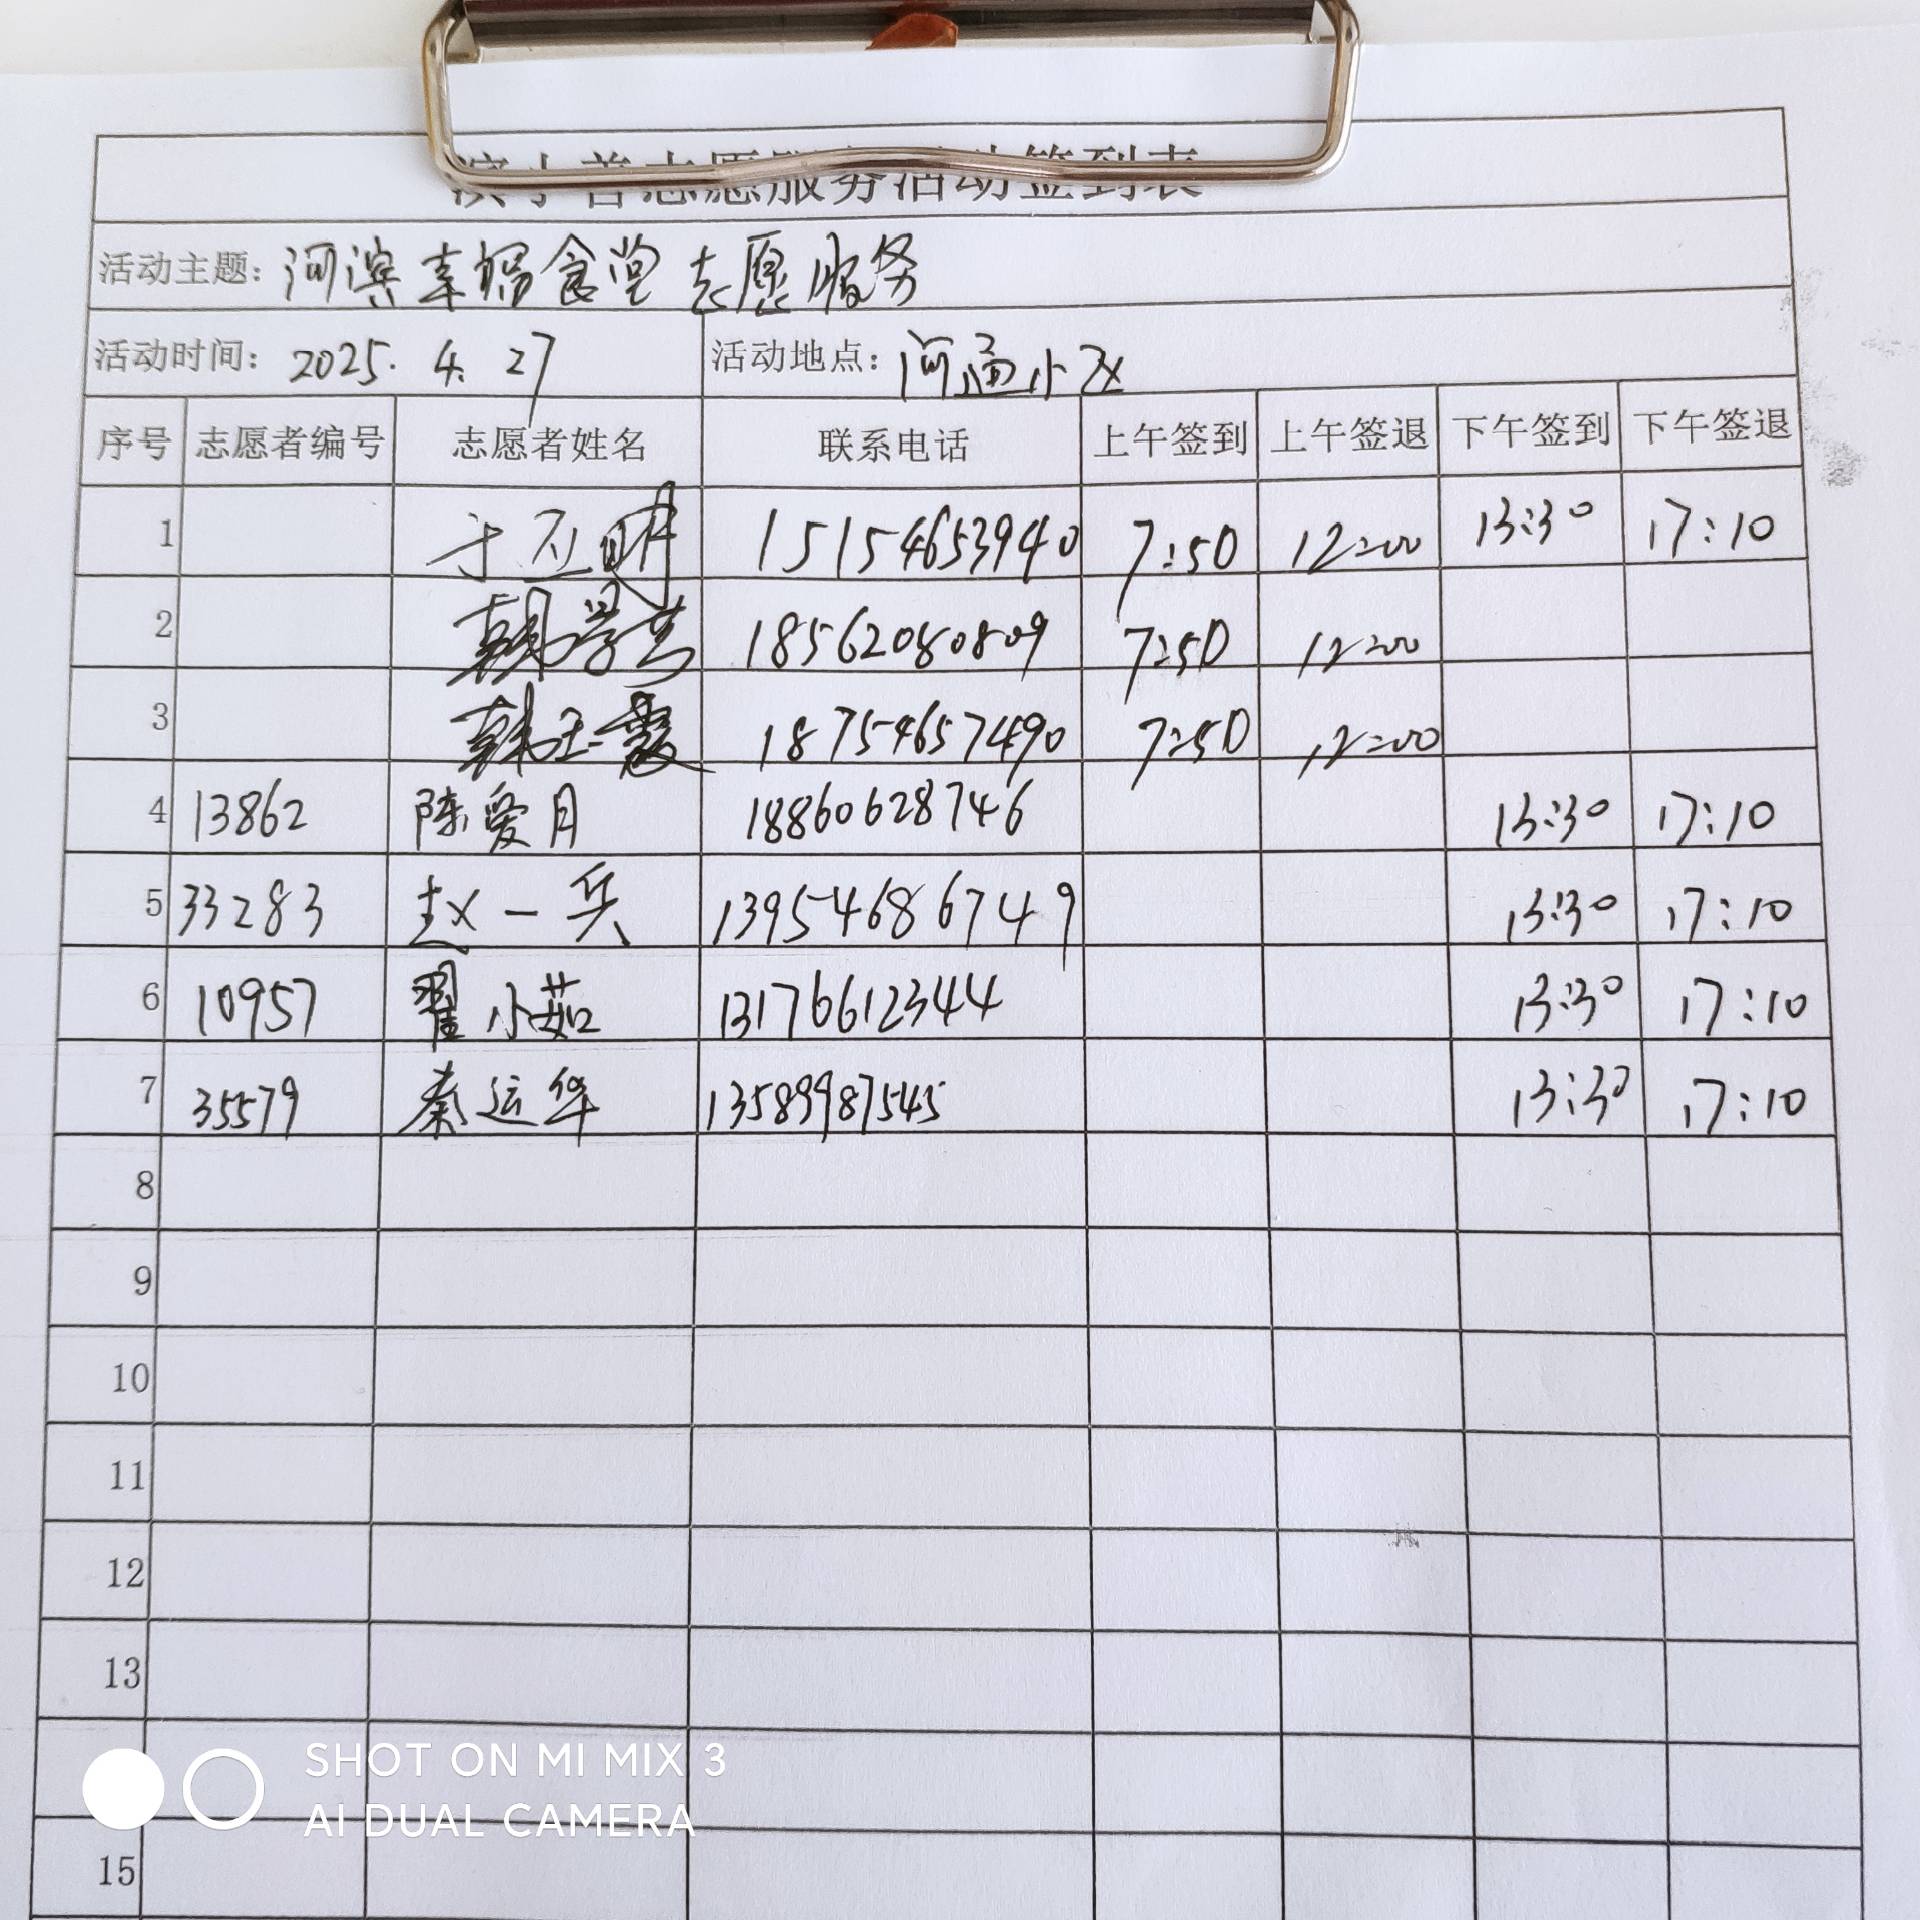 滨小善志愿服务活动签到表
活动主题：河滨幸福食堂志愿服务
活动时间：2025.4.27 活动地点：河滨小区
序号 志愿者编号 志愿者姓名 联系电话 上午签到 上午签退 下午签到 下午签退
1 于应明 15154653940 7:50 12:00 13:30 17:10
2 18562080809 7:50 12:00
3 韩玉霞 18754657490 7:50 12:00
4 13862 陈爱月 18860628746 13:30 17:10
5 33283 赵一兵 13954686749 13:30 17:10
6 10957 翟小茹 13176612344 13:30 17:10
7 35579 秦运华 13589987545 13:30 17:10
8
9
10
11
12
13
15
SHOT ON MI MIX 3
AI DUAL CAMERA